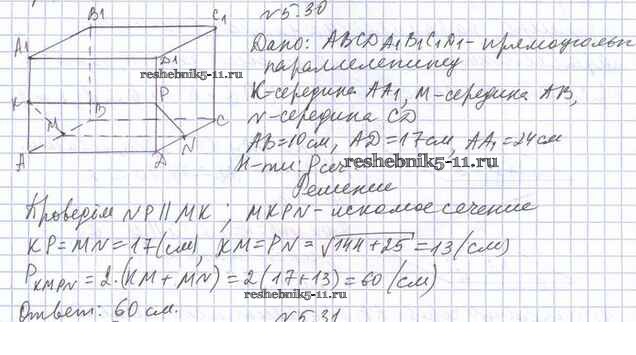 №5.30
Дано: ABCDA1B1C1D1-прямоугольн
параллелепипед
K-середина AA1, M-середина AB,
N-середина CD
AB=10см, AD=17см, AA1=24см
Н-ти: Pсеч.
reshebnik5-11.ru
Решение
Проведём NP||MK; MKPN-искомое сечение
KP=MN=17(см), KM=PN=√144+25=13(см)
PKMPN=2·(KM+MN)=2(17+13)=60(см)
reshebnik5-11.ru
Ответ: 60см.
№5.31
B1
C1
A1
D1
reshebnik5-11.ru
K
P
B
C
M
N
A
D